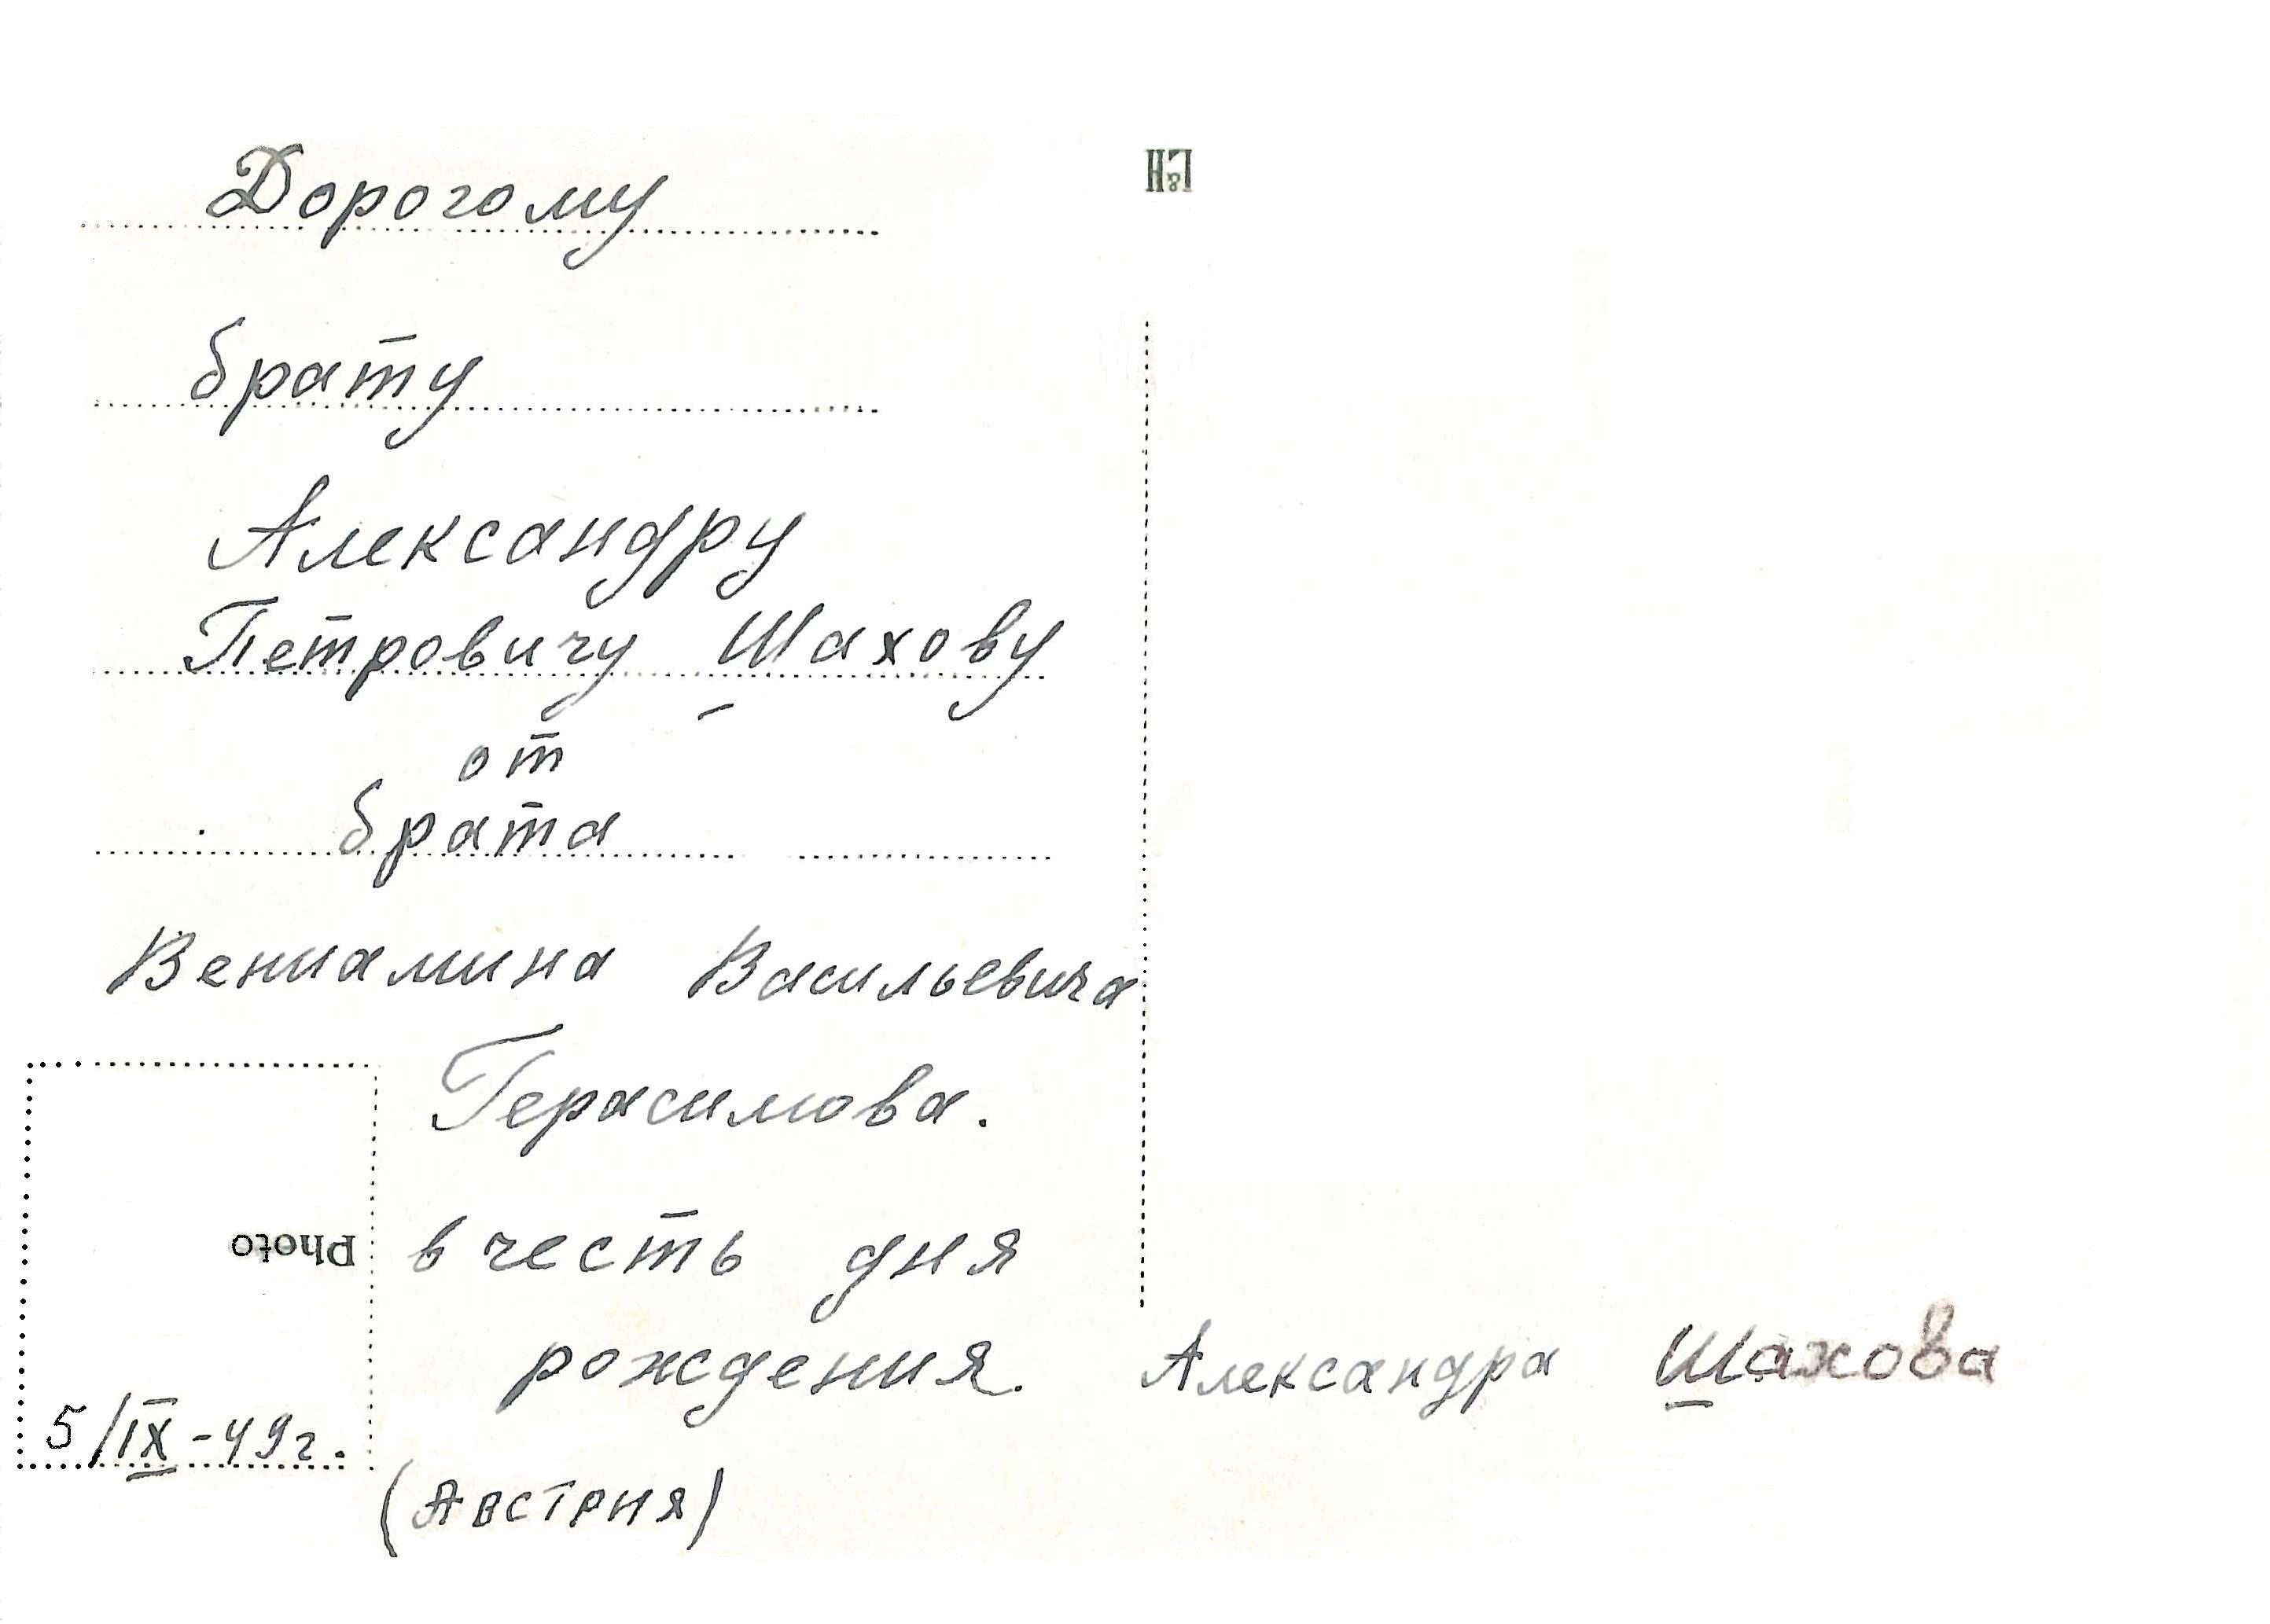 Дорогому
брату
Александру
Петровичу Шахову
от
брата
Вениамина Васильевича
Герасимова.
в честь дня
рождения. Александра Шахова
Photo
5/IX-49г.
(Австрия)